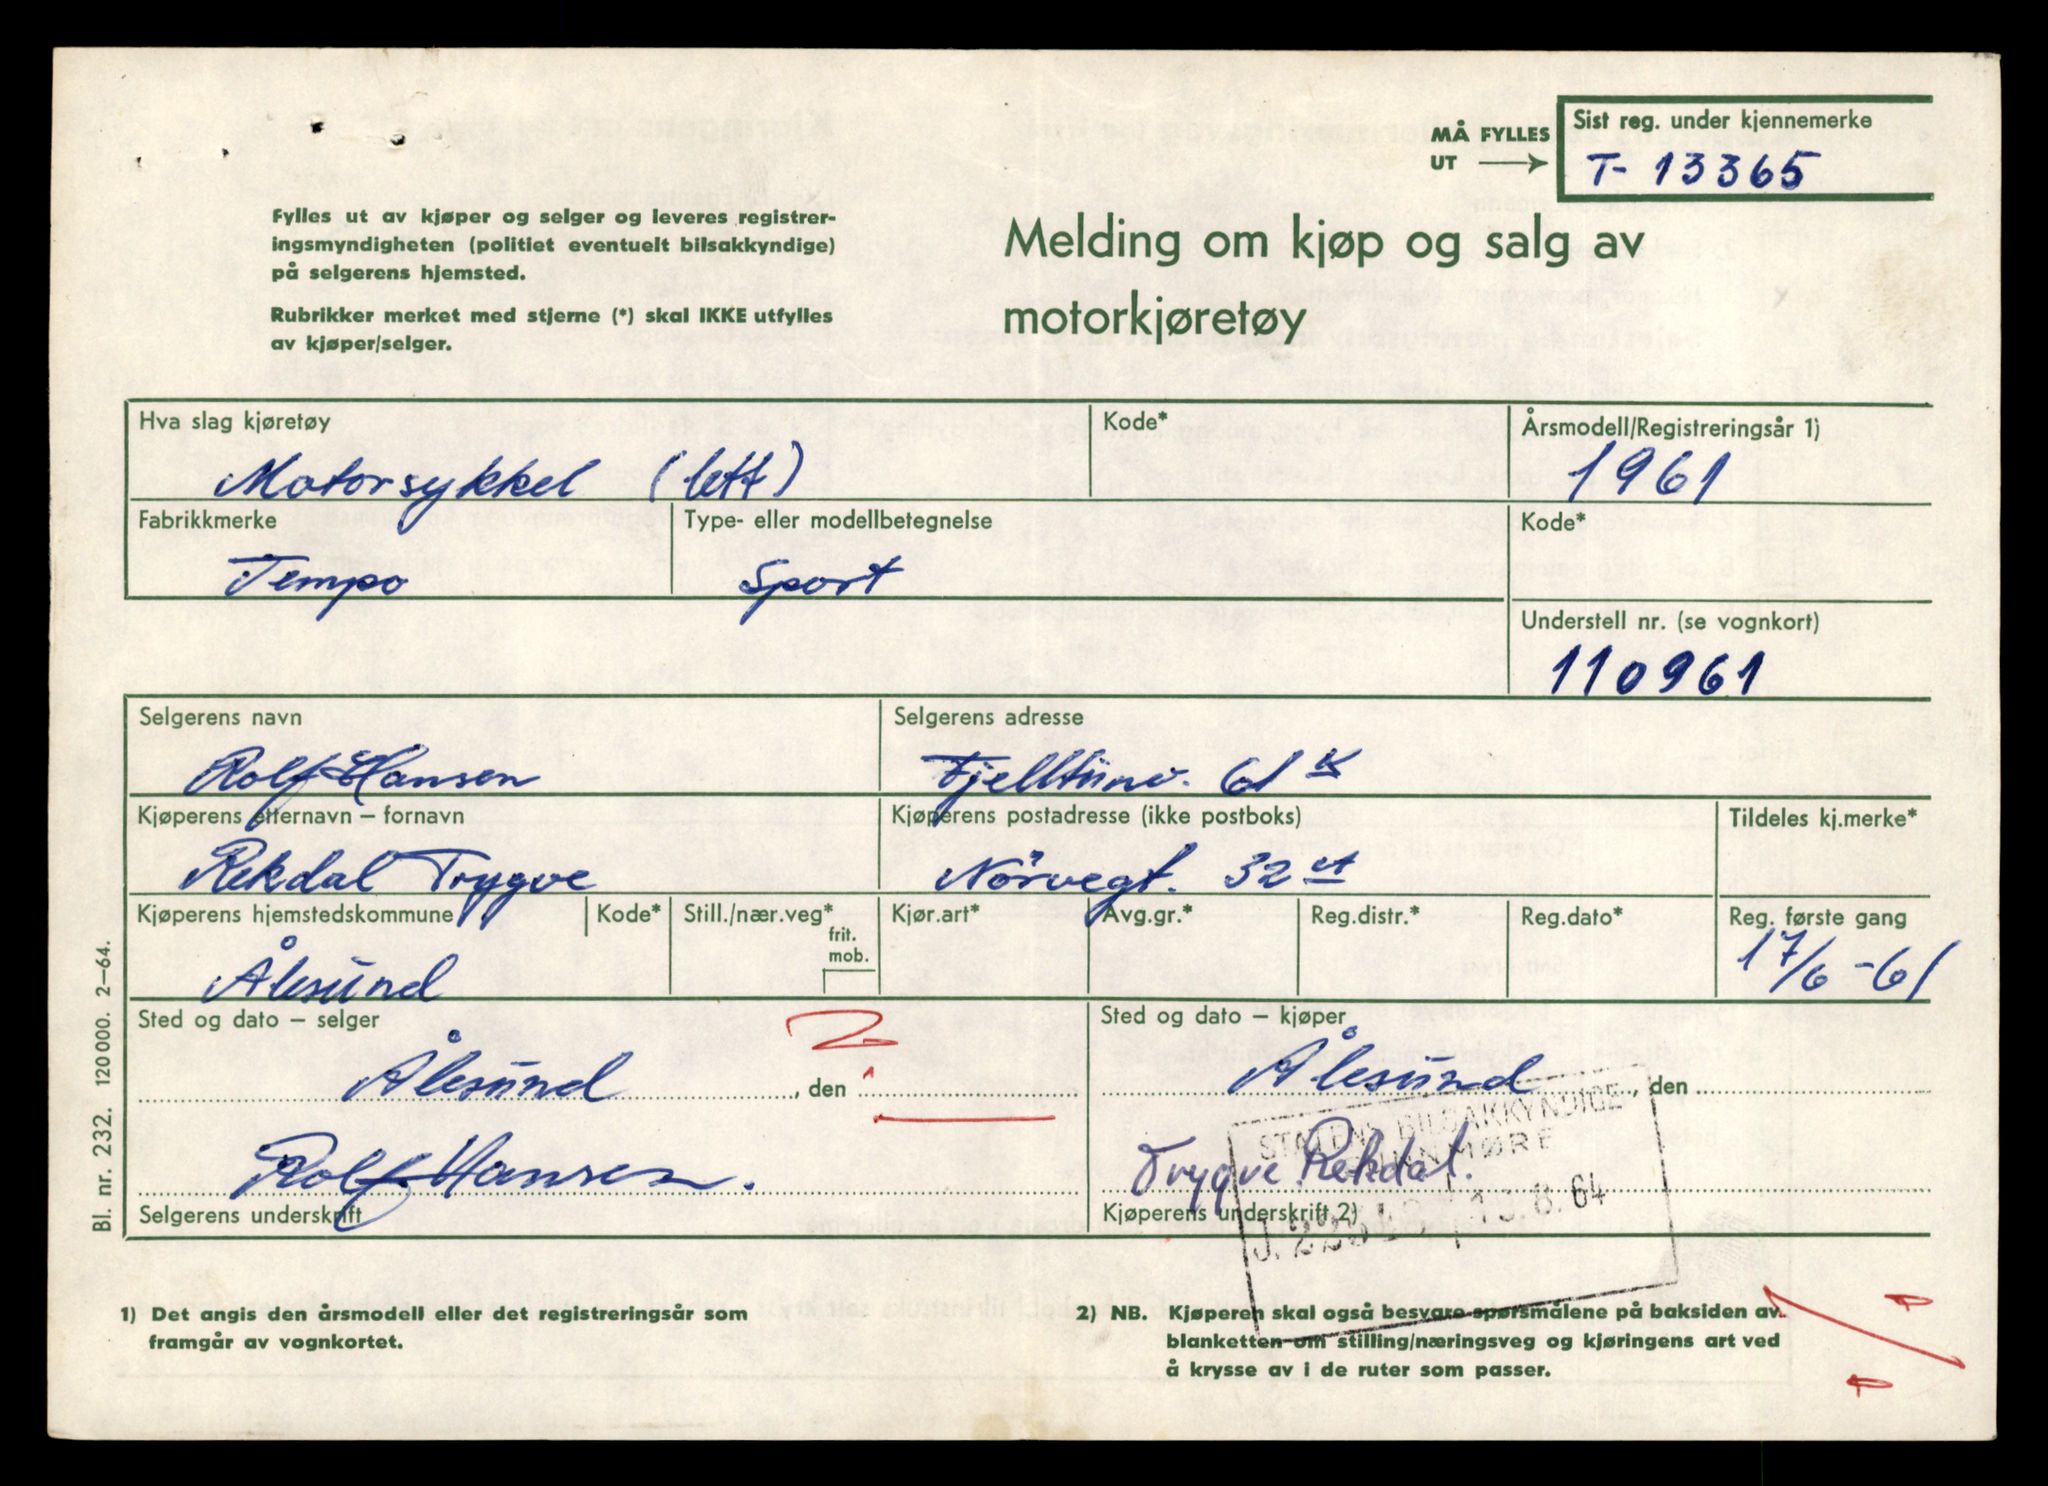 MÅ FYLLES UT
Sist reg. under kjennemerke
T- 13365
Fylles ut av kjøper og selger og leveres registrer-
ingsmyndigheten (politiet eventuelt bilsakkyndige)
på selgerens hjemsted.
Rubrikker merket med stjerne (*) skal IKKE utfylles
av kjøper/selger.
Melding om kjøp og salg av
motorkjøretøy
Hva slag kjøretøy
Kode*
Årsmodell/Registreringsår 1)
Motorsykkel (lett)
1961
Fabrikkmerke
Type- eller modellbetegnelse
Kode*
Tempo
Sport
Understell nr. (se vognkort)
110961
Selgerens navn
Selgerens adresse
Rolf Hansen
Fjelltunv. 61
Kjøperens etternavn – fornavn
Kjøperens postadresse (ikke postboks)
Tildeles kj.merke*
Rekdal Trygve
Nörvegt. 32
Kjøperens hjemstedskommune
Kode*
Still./nær.veg*
frit.
mob.
Kjør.art*
Avg.gr.*
Reg.distr.*
Reg.dato*
Reg. første gang
Ålesund
17/6 -61
Sted og dato – selger
Sted og dato – kjøper
Ålesund, den
Ålesund, den
Rolf Hansen.
Trygve Rekdal.
Selgerens underskrift
Kjøperens underskrift 2)
STATENS BILSAKKYNDIGE
SUNNMØRE
13.8.64
1) Det angis den årsmodell eller det registreringsår som
framgår av vognkortet.
2) NB. Kjøperen skal også besvare spørsmålene på baksiden av
blanketten om stilling/næringsveg og kjøringens art ved
å krysse av i de ruter som passer.
Bl. nr. 232. 120 000. 2–64.